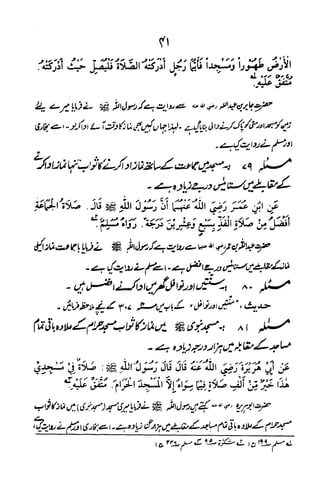 ۴۱
الْأَرْضُ طَهُوْرًا وَمَسْجِدًا فَأَيُّمَا رَجُلٍ أَدْرَكَتْهُ الصَّلَاةُ فَلْيُصَلِّ حَيْثُ أَدْرَكَتْهُ.
مُتَّفَقٌ عَلَيْهِ.
حضرت جابر بن عبداللہ رضی اللہ عنہ سے روایت ہے کہ رسول اللہ ﷺ نے فرمایا میرے لیے
زمین کو مسجد اور مٹی کو پاک کرنے والی بنایا گیا ہے۔ لہٰذا جہاں کہیں بھی نماز کا وقت آئے ادا کر لو۔ اسے بخاری
اور مسلم نے روایت کیا ہے۔
مسئلہ ۷۹ مسجد میں جماعت کے ساتھ نماز ادا کرنے کا ثواب تنہا نماز ادا کرنے
کے مقابلے میں ستائیس درجے زیادہ ہے۔
عَنِ ابْنِ عُمَرَ رَضِيَ اللهُ عَنْهُمَا أَنَّ رَسُوْلَ اللهِ ﷺ قَالَ. صَلَاةُ الْجَمَاعَةِ
أَفْضَلُ مِنْ صَلَاةِ الْفَذِّ بِسَبْعٍ وَّعِشْرِيْنَ دَرَجَةً. رَوَاهُ مُسْلِمٌ.
حضرت عبداللہ بن عمر رضی اللہ عنہما سے روایت ہے کہ رسول اللہ ﷺ نے فرمایا باجماعت نماز اکیلی
نماز کے مقابلے میں ستائیس درجے افضل ہے۔ اسے مسلم نے روایت کیا ہے۔
مسئلہ ۸۰ سنتیں اور نوافل گھر میں ادا کرنے افضل ہیں۔
حدیث، سنتیں اور نوافل کے باب میں مسئلہ ۳۰۷ کے نیچے ملاحظہ فرمائیں۔
مسئلہ ۸۱ مسجد نبوی ﷺ میں نماز کا ثواب مسجد حرام کے علاوہ باقی تمام
مساجد کے مقابلہ میں ہزار درجہ زیادہ ہے۔
عَنْ أَبِيْ هُرَيْرَةَ رَضِيَ اللهُ عَنْهُ قَالَ قَالَ رَسُوْلُ اللهِ ﷺ: صَلَاةٌ فِيْ مَسْجِدِيْ
هٰذَا خَيْرٌ مِّنْ أَلْفِ صَلَاةٍ فِيْمَا سِوَاهُ إِلَّا الْمَسْجِدَ الْحَرَامَ. مُتَّفَقٌ عَلَيْهِ.
حضرت ابو ہریرہ رضی اللہ عنہ کہتے ہیں رسول اللہ ﷺ نے فرمایا میری مسجد (مسجد نبوی) میں نماز کا ثواب
مسجد حرام کے علاوہ باقی تمام مساجد کے مقابلے میں ہزار گنا زیادہ ہے۔ اسے بخاری اور مسلم نے روایت کیا ہے۔